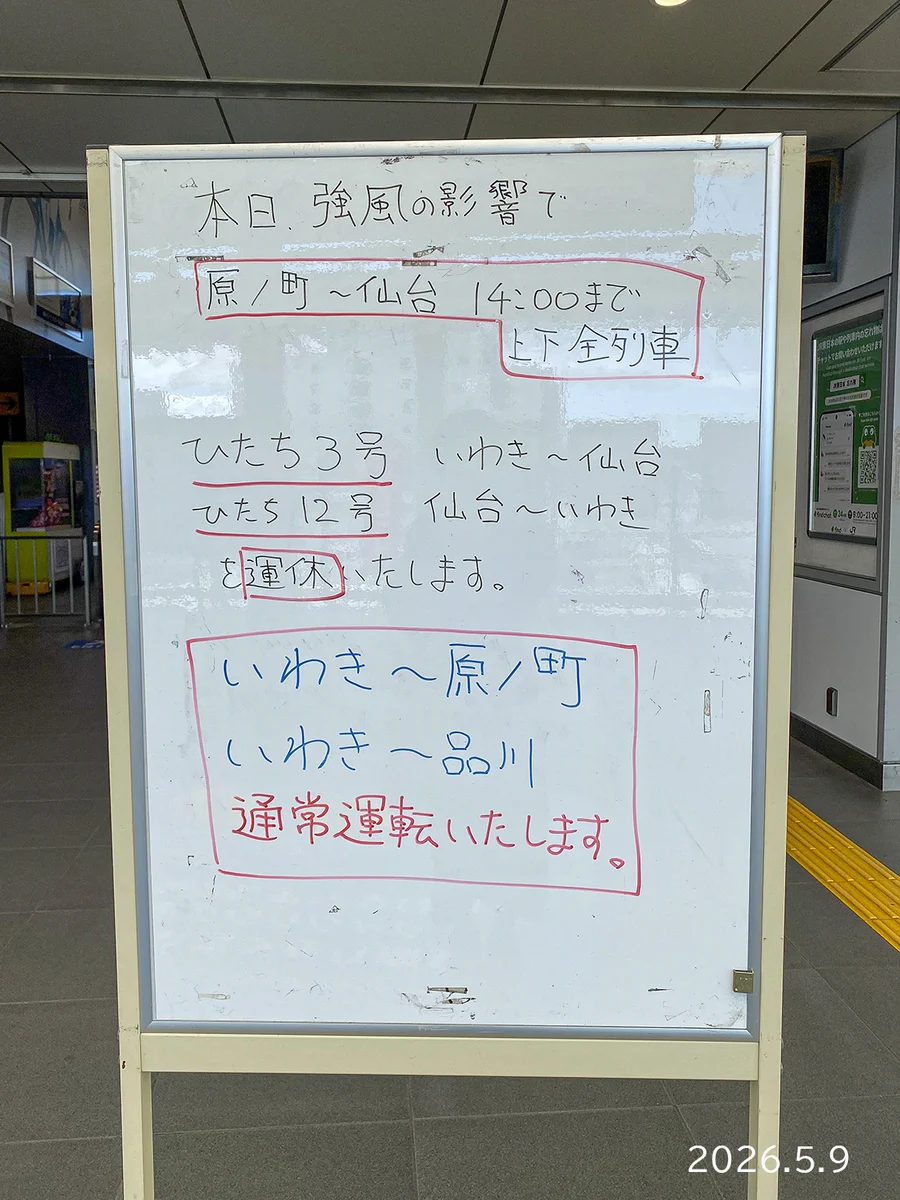 本日、強風の影響で
原ノ町～仙台 14:00まで
上下全列車
ひたち3号 いわき～仙台
ひたち12号 仙台～いわき
を運休いたします。
いわき～原ノ町
いわき～品川
通常運転いたします。
2026.5.9